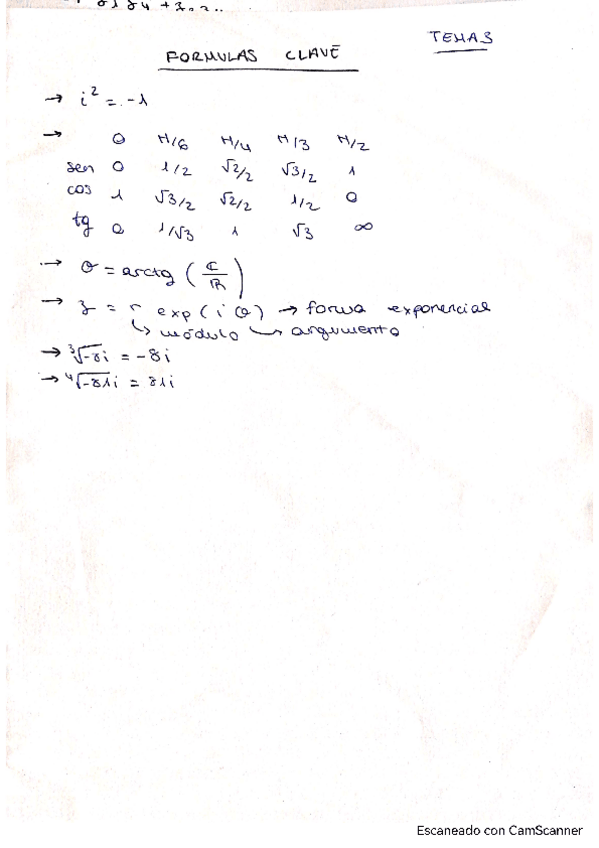 TEMA3
FORMULAS CLAVE
→ i² = -1
→ 0 π/6 π/4 π/3 π/2
sen 0 1/2 √2/2 √3/2 1
cos 1 √3/2 √2/2 1/2 0
tg 0 1/√3 1 √3 ∞
→ θ = arctg (C/R)
→ z = r exp(iθ) → forma exponencial
↳ módulo ↳ argumento
→ ³√-8i = -8i
→ ⁴√-81i = 81i
Escaneado con CamScanner